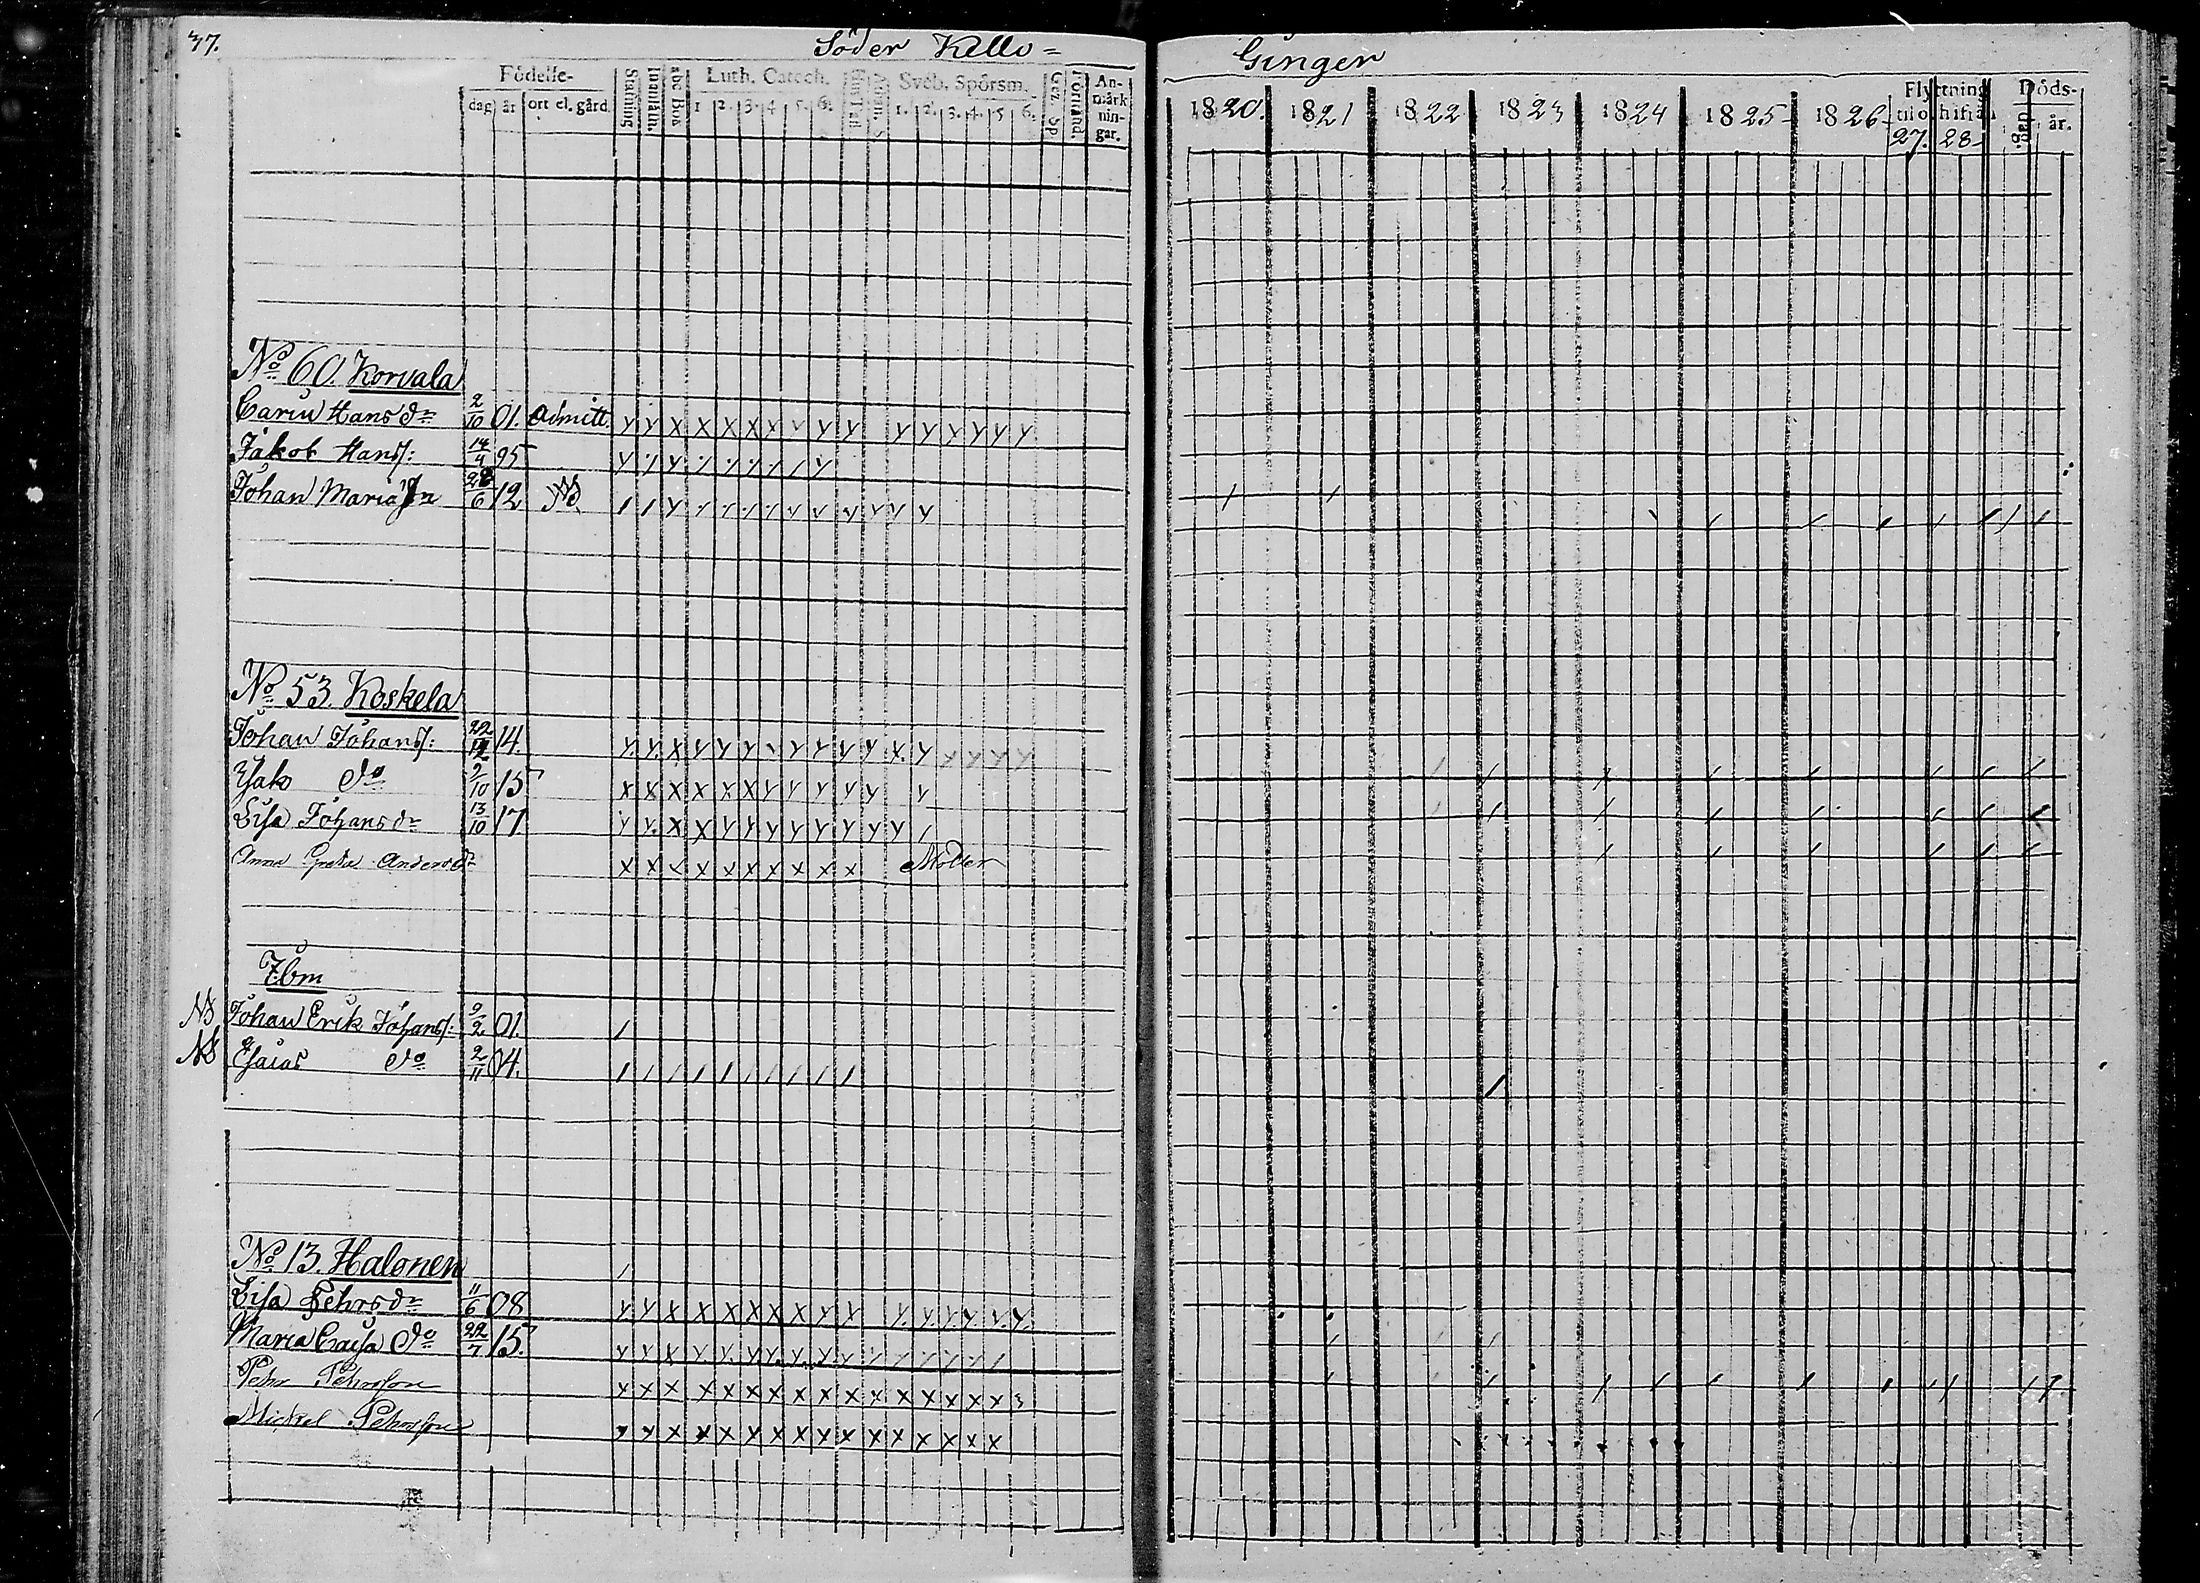 37.
Söder Kello=
Ginger
Födelse-
dag år ort el. gård.
Stafning
Innanläsn.
Abc Bok
Luth. Catech.
1 2. 3. 4 5. 6.
Sveb. Spörsm.
1. 2. 3. 4. 5 6.
Gez. Sp.
Förstånd
An-
märk
nin-
gar.
1820. 1821 1822 1823 1824 1825 1826
Flyttning
til och ifrån
27. 28
Döds-
dag. år.
No 60. Korvala
Carin Hans dr 2/10 01. admitt.
Jakob Hanss: 14/4 95
Johan Maria 28/6 12 NB.
No 53. Koskela
Johan Johanss: 22/12 14.
Esais do 9/10 15
Lisa Johans dr 13/10 17
Anna Greta Anders dr Moder
Ibm
NB Johan Erik Johanss: 9/2 01.
NB Esaias do 2/11 04.
No 13. Halonen
Lisa Pehrs dr 11/6 08
Maria Caisa do 22/7 15.
Pehr Pehrsson
Mickel Pehrsson